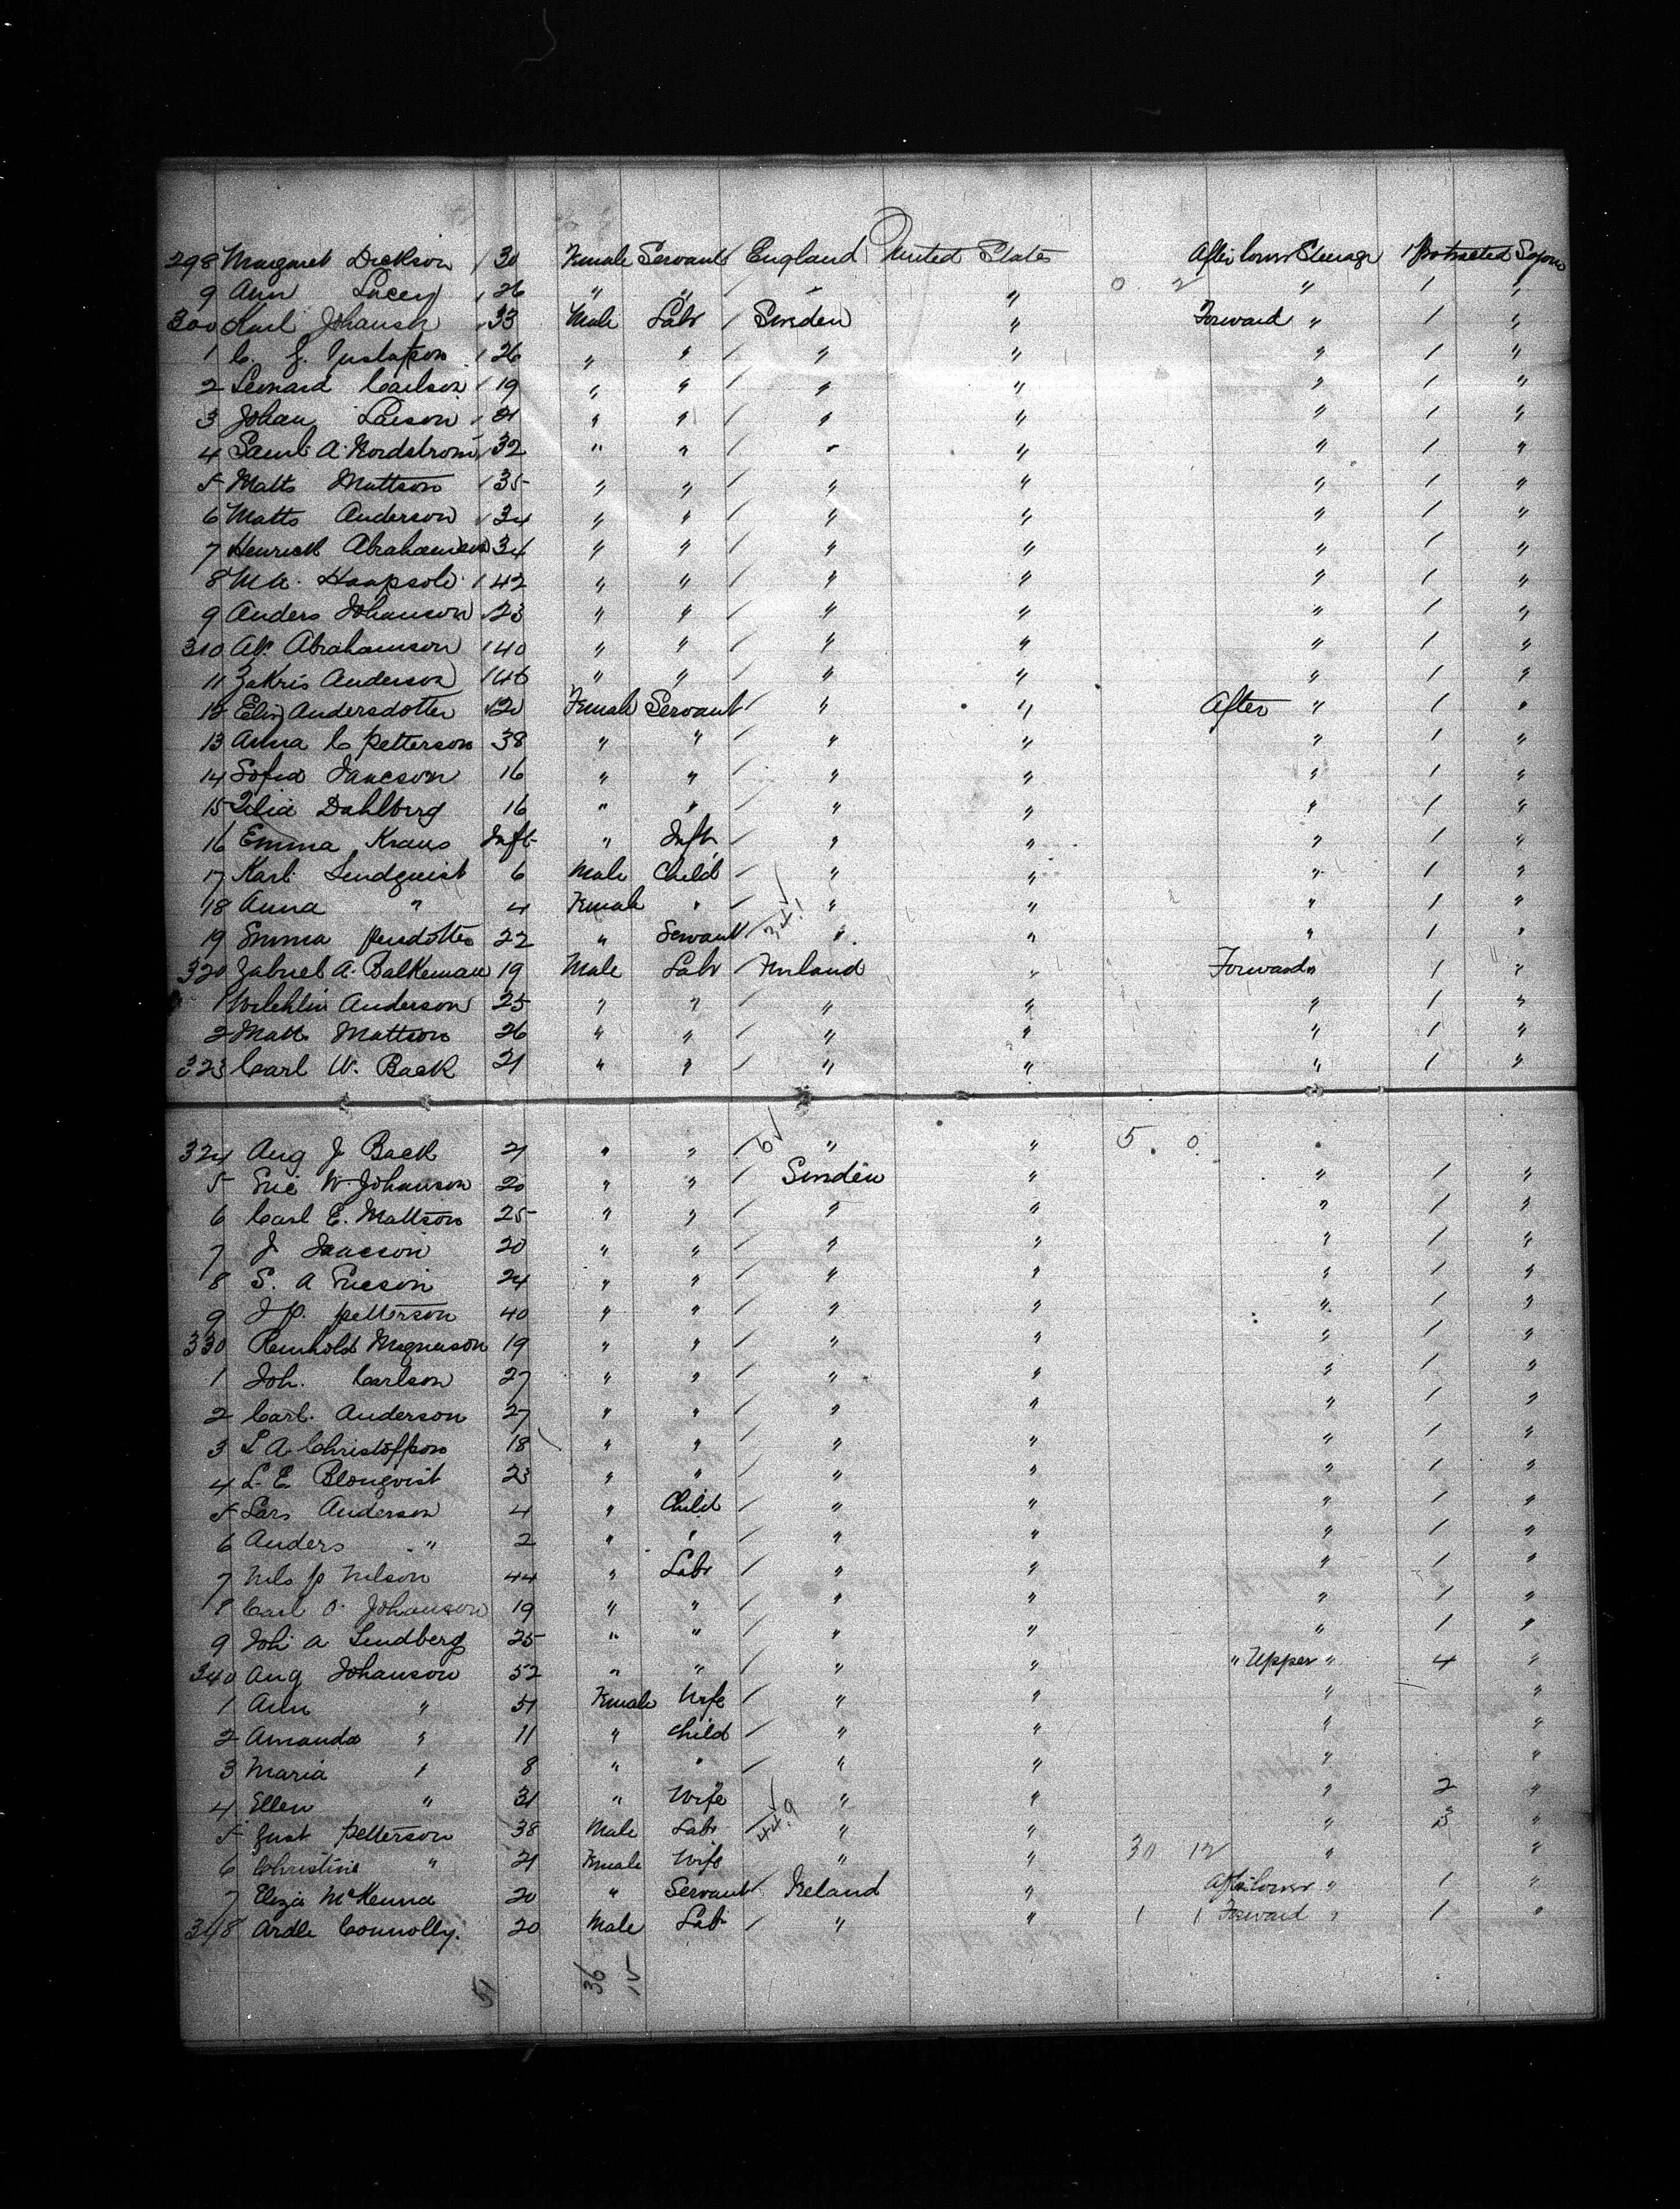 298 Margaret Dickson 30 Female Servant England United States After lower Steerage 1 Protracted Sojour
9 Ann Lucey 26 " " " " 0 2 " 1 "
300 Karl Johansn 33 Male Labr Sweden " Forward " 1 "
1 C. J. Gustafson 26 " " " " " 1 "
2 Leonard Carlson 19 " " " " " 1 "
3 Johan Larson 21 " " " " " 1 "
4 Saml A. Nordstrom 32 " " " " " 1 "
5 Matts Mattson 35 " " " " " 1 "
6 Matts Anderson 34 " " " " " 1 "
7 Henrick Abrahamson 34 " " " " " 1 "
8 Haapsoli 42 " " " " " 1 "
9 Anders Johanson 23 " " " " " 1 "
310 Abrahamson 40 " " " " " 1 "
11 Zakris Anderson 46 " " " " " 1 "
12 Eliz Andersdotter 20 Female Servant " " After " 1 "
13 Anna C Petterson 38 " " " " " 1 "
14 Sofia Jancson 16 " " " " " 1 "
15 Dahlbrrg 16 " " " " " 1 "
16 Emma Kraus Inft " Inft " " " 1 "
17 Karl Lindquist 6 Male Child " " " 1 "
18 Anna " 4 Female " " " " 1 "
19 Emma 22 " Servant 34.1 " " " 1 "
320 Gabriel A. Balkeman 19 Male Labr Finland " Forward " 1 "
1 Anderson 25 " " " " " 1 "
2 Matts Mattson 26 " " " " " 1 "
323 Carl W. Back 21 " " " " " 1 "
324 Aug J Back 21 " " 6 " " 5. 0 "
5 Eric W Johanson 20 " " Sweden " " 1 "
6 Carl E. Mattson 25 " " " " " 1 "
7 J Jancson 20 " " " " " 1 "
8 S. A Ericson 24 " " " " " 1 "
9 J P. Petterson 40 " " " " " 1 "
330 Reinhold Magnuson 19 " " " " " 1 "
1 Joh. Carlson 27 " " " " " 1 "
2 Carl. Anderson 27 " " " " " 1 "
3 L A. Christoffson 18 " " " " " 1 "
4 L. E. Blonqvist 23 " " " " " 1 "
5 Lars Anderson 4 " Child " " " 1 "
6 Anders " 2 " " " " " 1 "
7 Nils P Nilson 44 " Labr " " " 1 "
8 Carl O. Johanson 19 " " " " " 1 "
9 Joh A Lindberg 25 " " " " " 1 "
340 Aug Johanson 52 " " " " " Upper " 4 "
1 Ann " 51 Female Wife " " " "
2 Amanda " 11 " Child " " " "
3 Maria " 8 " " " " " "
4 Ellen " 31 " Wife " " " 2 "
5 Gust Petterson 38 Male Labr 44.9 " " " 3 "
6 Christine " 21 Female Wife " " 30 12 " "
7 Eliza McKenna 20 " Servant Ireland " After lower " 1 "
348 Ardle Connolly. 20 Male Labr " " 1 1 Forward " 1 "
51 36 15